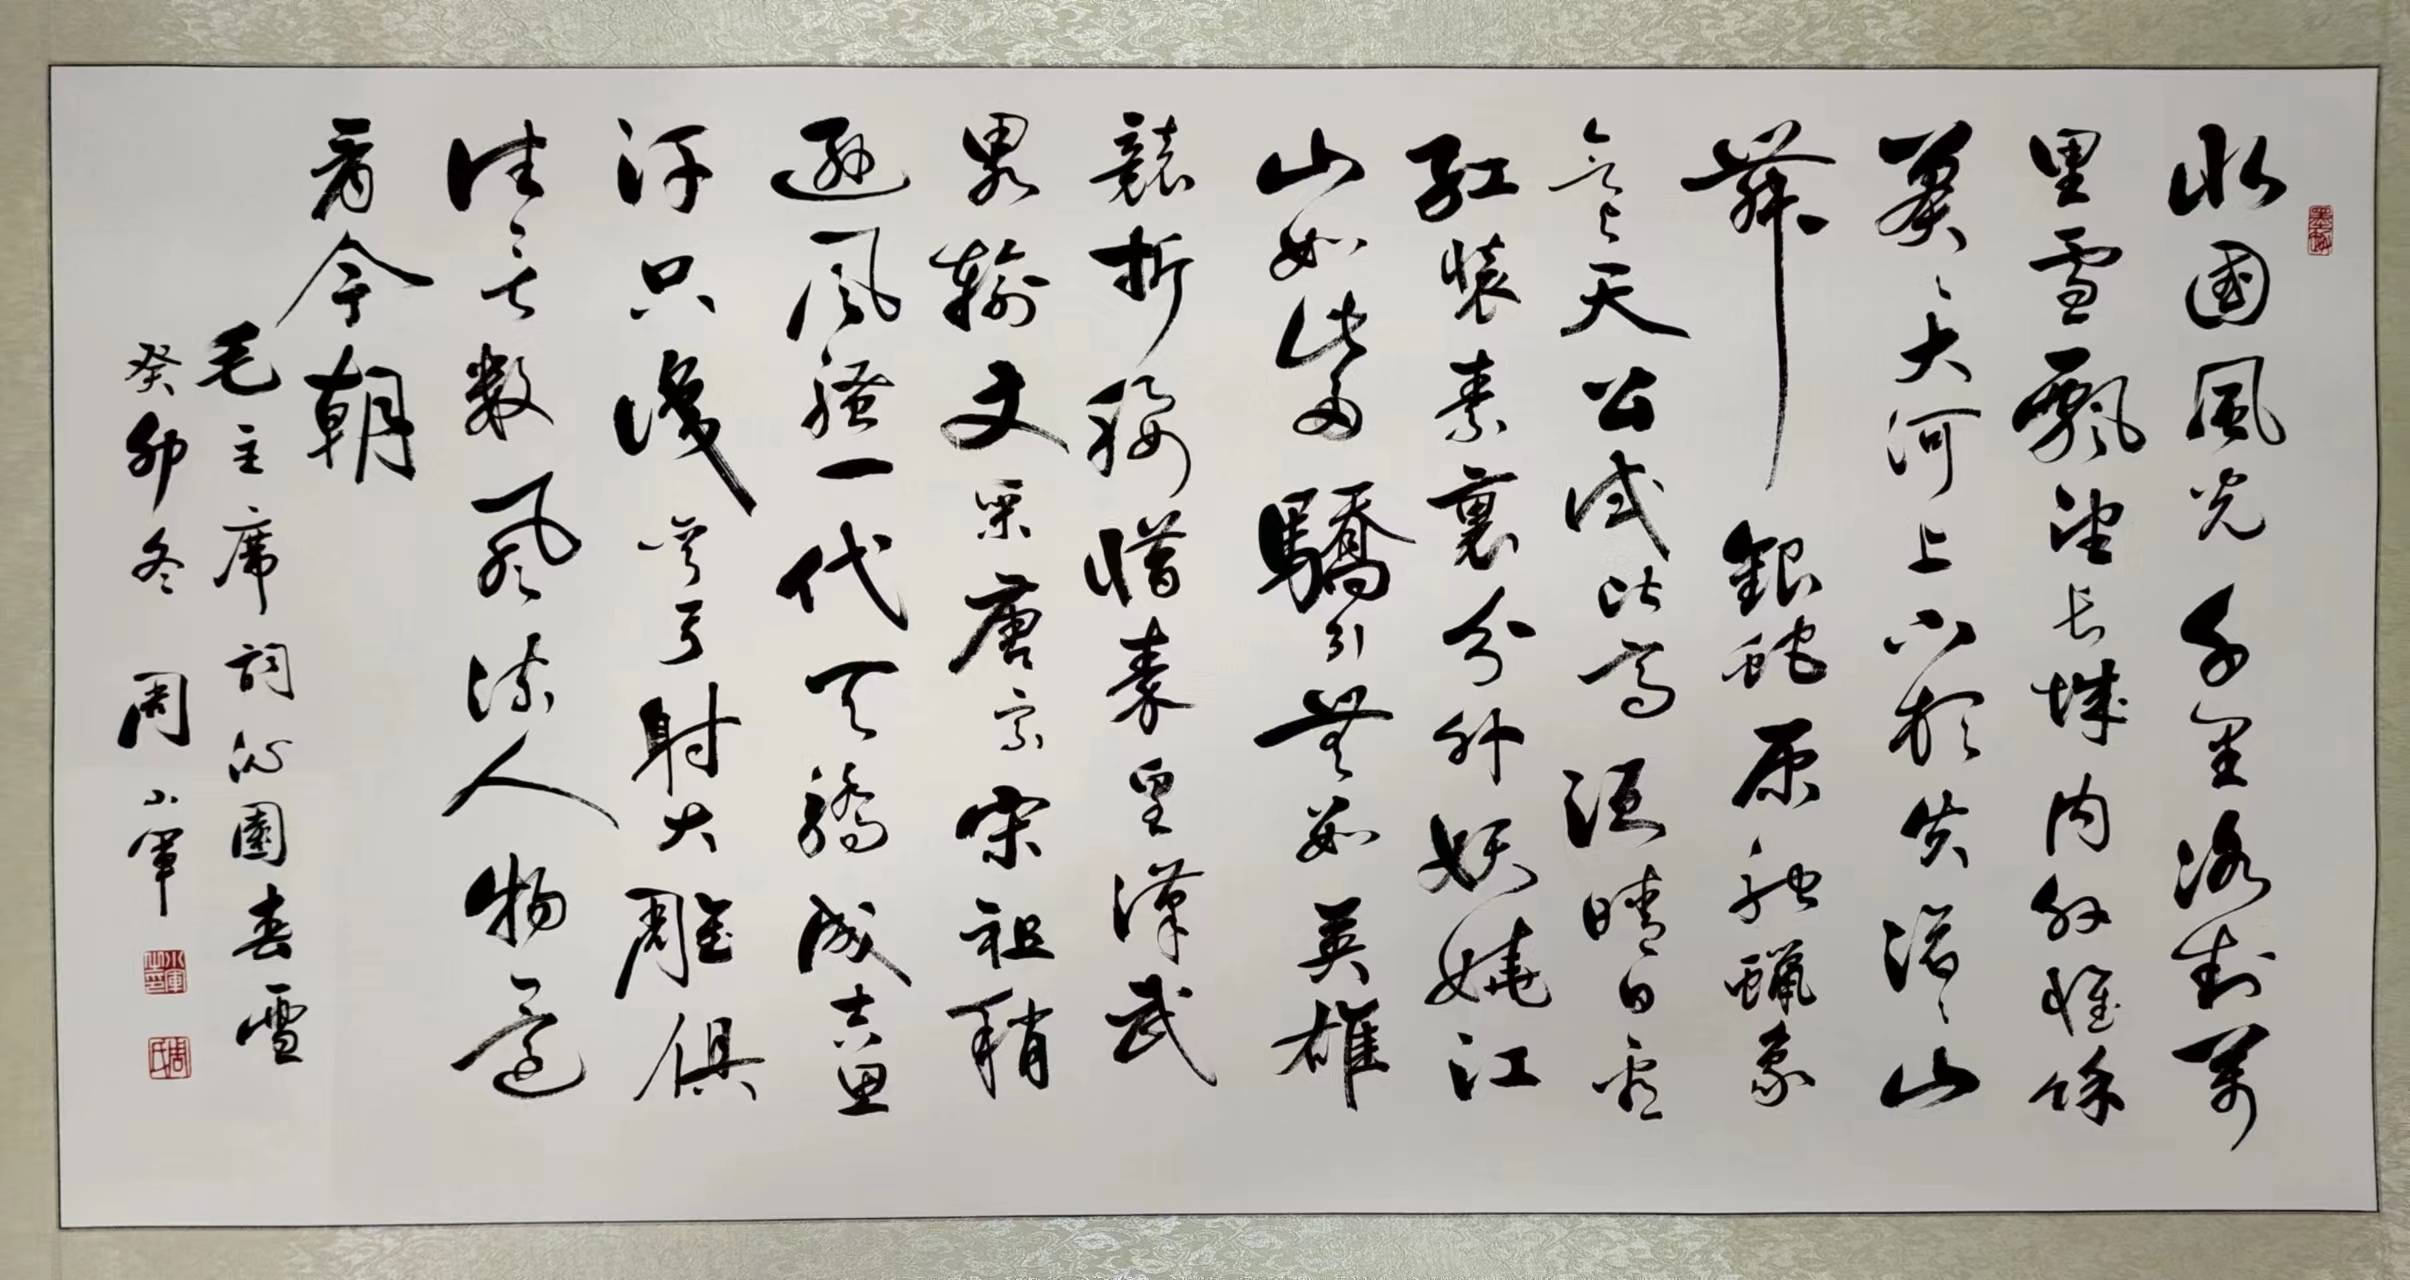 北國風光千里冰封萬
里雪飄望長城內外惟餘
莽〻大河上下頓失滔〻山
舞銀蛇原馳蠟象
欲与天公試比高須晴日看
紅裝素裹分外妖嬈江
山如此多驕引無數英雄
競折腰惜秦皇漢武
畧輸文采唐宗宋祖稍
遜風騷一代天驕成吉思
汗只識彎弓射大雕俱
往矣數風流人物還
看今朝
毛主席詞沁園春雪
癸卯冬 周小軍
小軍之印
周氏